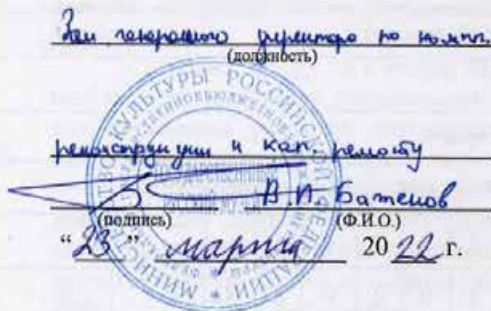 Зам генерального директора по компл.
(должность)
реконструкции и кап. ремонту
В.П. Баженов
(подпись) (Ф.И.О.)
“23” марта 2022 г.
МИНИСТЕРСТВО КУЛЬТУРЫ РОССИЙСКОЙ ФЕДЕРАЦИИ